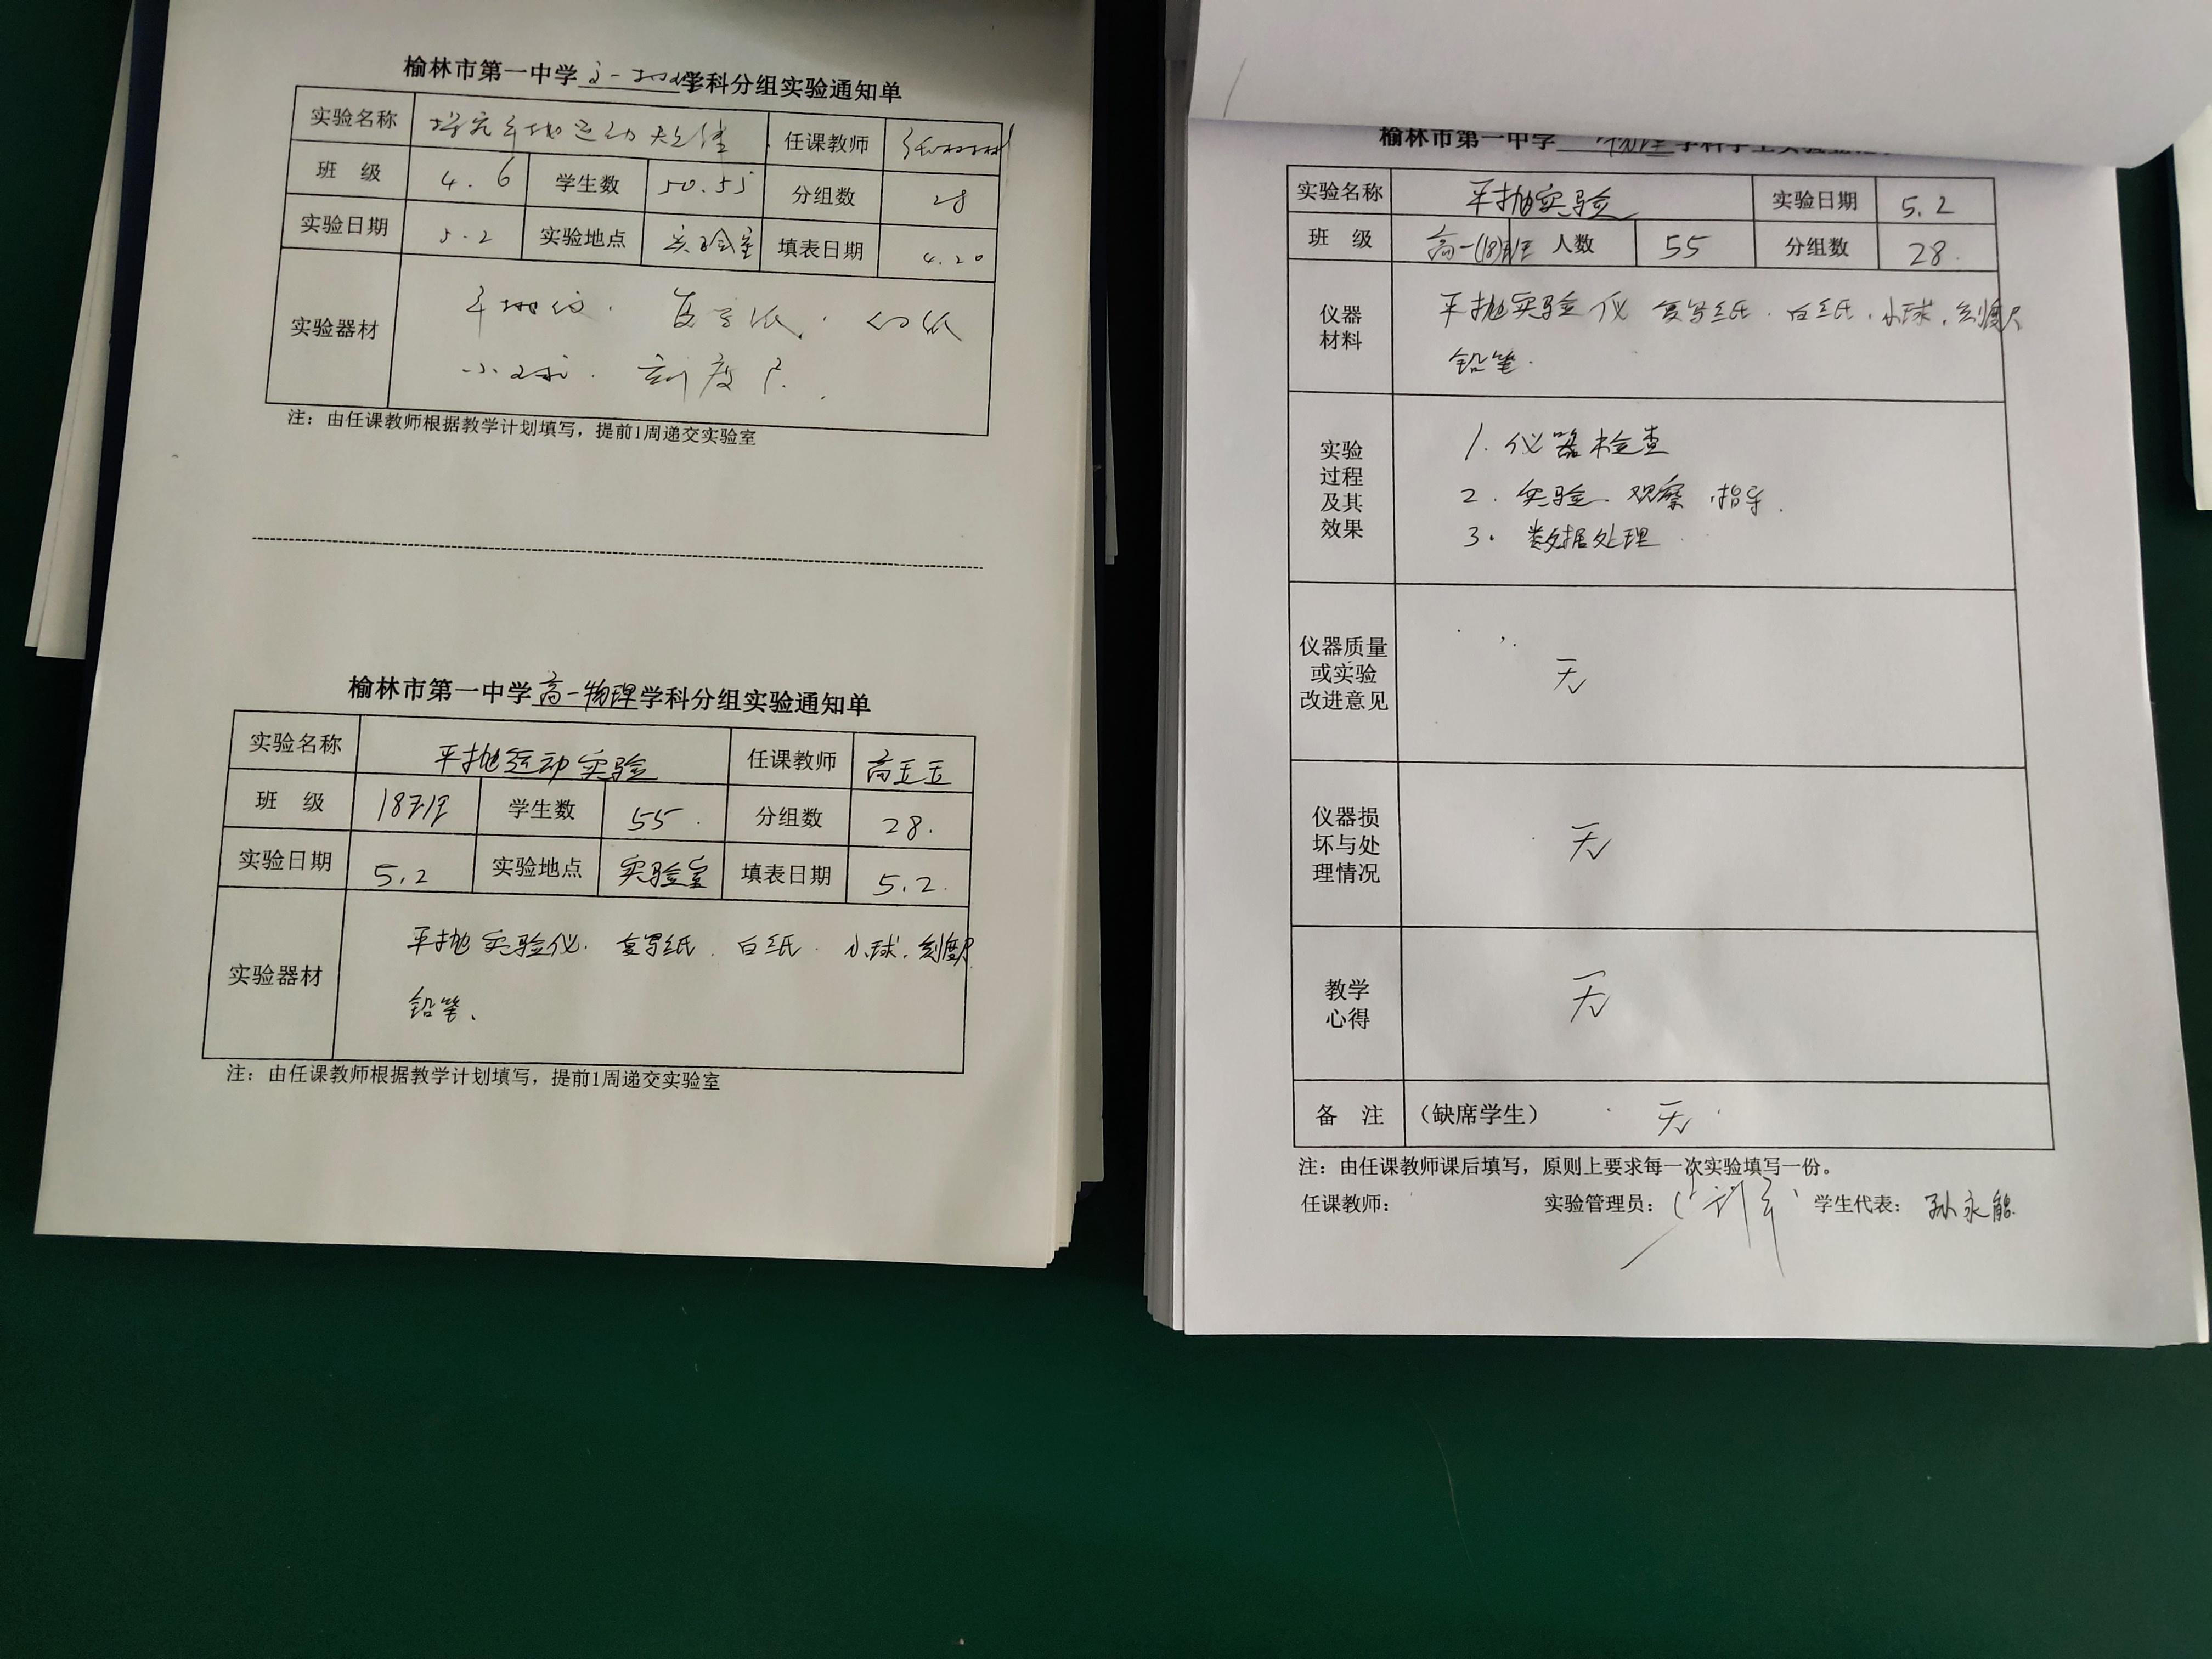 榆林市第一中学高一物理学科分组实验通知单
实验名称 探究平抛运动规律 任课教师
班 级 4.6 学生数 50.55 分组数 28
实验日期 5.2 实验地点 实验室 填表日期 4.20
实验器材 平抛仪. 复写纸. 白纸
小球. 刻度尺.
注：由任课教师根据教学计划填写，提前1周递交实验室
榆林市第一中学高一物理学科分组实验通知单
实验名称 平抛运动实验 任课教师 高玉玉
班 级 18班 学生数 55. 分组数 28.
实验日期 5.2 实验地点 实验室 填表日期 5.2.
实验器材 平抛实验仪. 复写纸. 白纸. 小球. 刻度尺
铅笔、
注：由任课教师根据教学计划填写，提前1周递交实验室
榆林市第一中学 物理 学科学生实验
实验名称 平抛实验 实验日期 5.2
班 级 高一(18)班 人数 55 分组数 28.
仪器材料 平抛实验仪 复写纸. 白纸. 小球. 刻度尺
铅笔.
实验过程及其效果 1. 仪器检查
2. 实验、观察 指导.
3. 数据处理
仪器质量或实验改进意见 无
仪器损坏与处理情况 无
教学心得 无
备 注 （缺席学生） 无
注：由任课教师课后填写，原则上要求每一次实验填写一份。
任课教师： 实验管理员： 学生代表： 孙永能